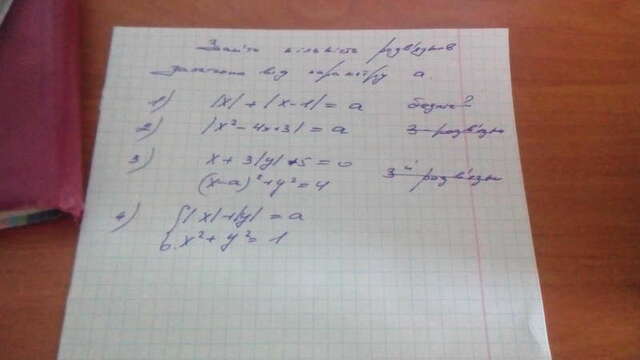 Знайти кількість розв'язків
залежно від параметру a
1) |x| + |x-1| = a безліч?
2) |x² - 4x+3| = a 3 розв'язки
3) x + 3|y| + 5 = 0
(x-a)² + y² = 4 3 розв'язки
4) { |x| + |y| = a
x² + y² = 1